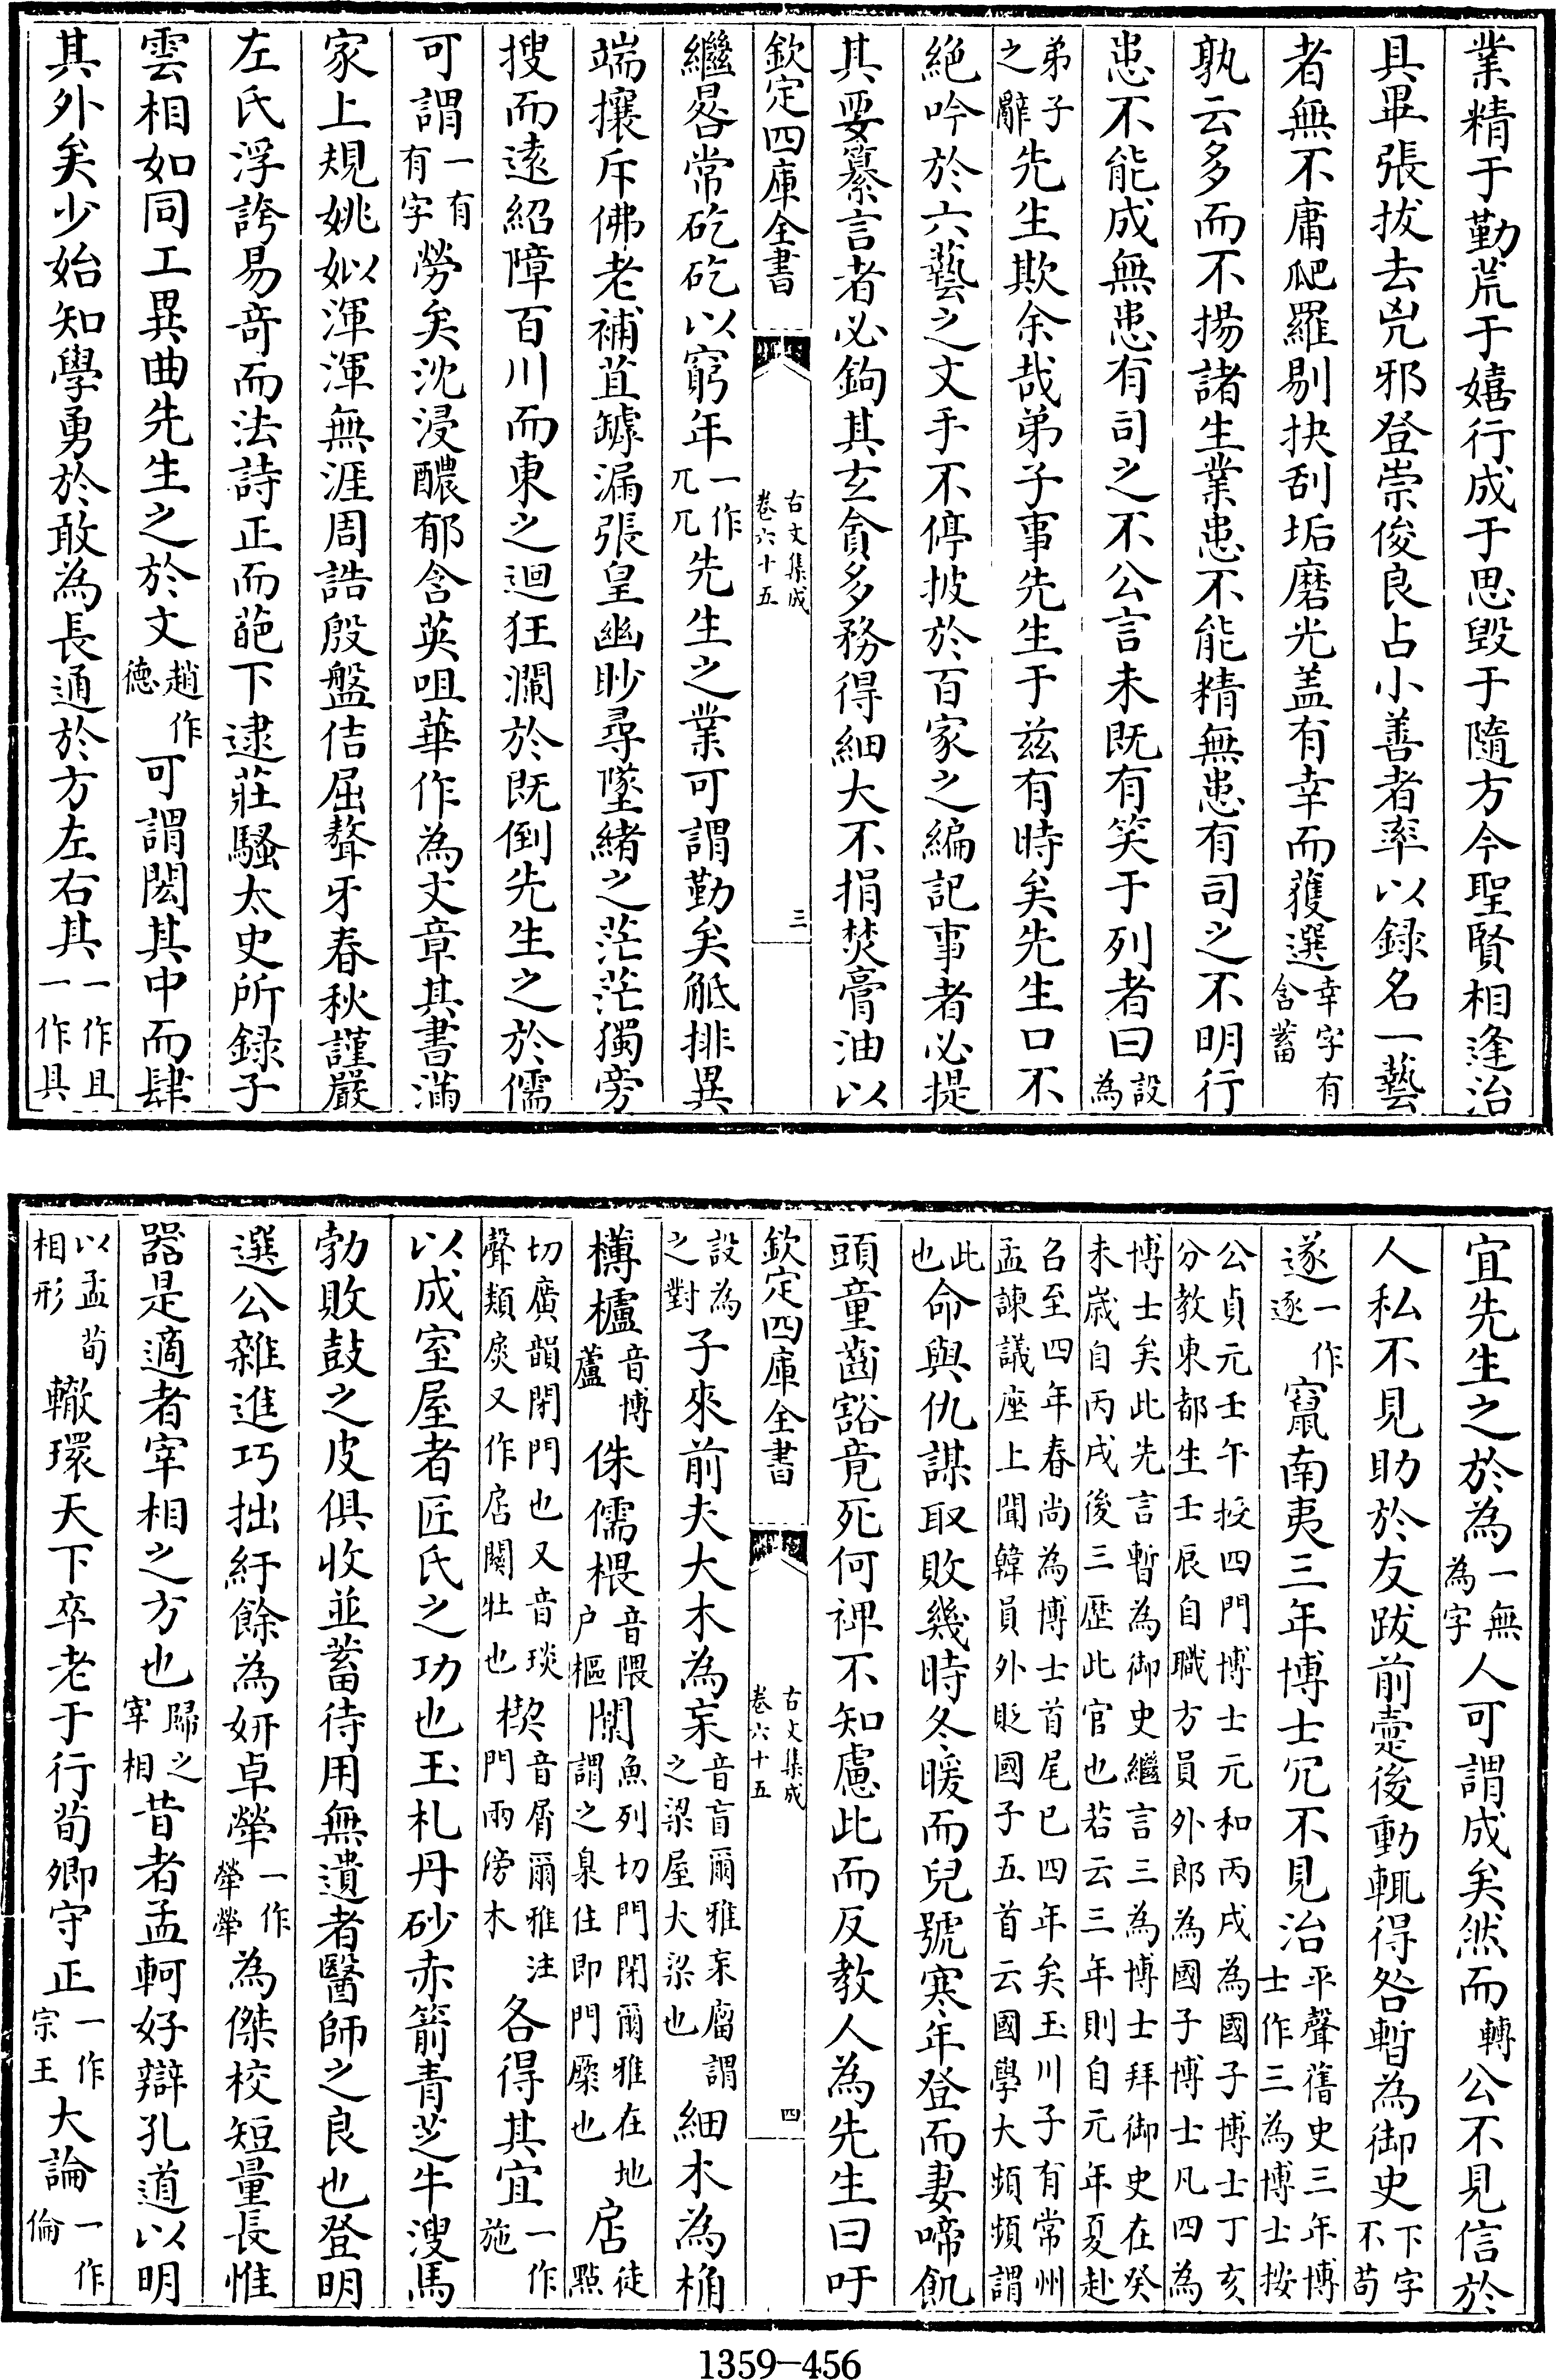 業精于勤荒于嬉行成于思毀于隨方今聖賢相逢治
具畢張拔去兇邪登崇俊良占小善者率以録名一藝
者無不庸爬羅剔抉刮垢磨光盖有幸而獲選幸字有含蓄
孰云多而不揚諸生業患不能精無患有司之不明行
患不能成無患有司之不公言未既有笑于列者曰設為
弟子之辭先生欺余哉弟子事先生于兹有時矣先生口不
絶吟於六藝之文手不停披於百家之編記事者必提
其要纂言者必鉤其玄貪多務得細大不捐焚膏油以
欽定四庫全書 古文集成卷六十五 三
繼晷常矻矻以窮年一作兀兀先生之業可謂勤矣觝排異
端攘斥佛老補苴罅漏張皇幽眇尋墜緒之茫茫獨旁
搜而遠紹障百川而東之迴狂瀾於既倒先生之於儒
可謂一有有字勞矣沈浸醲郁含英咀華作為文章其書滿
家上規姚姒渾渾無涯周誥殷盤佶屈聱牙春秋謹嚴
左氏浮誇易竒而法詩正而葩下逮莊騷太史所録子
雲相如同工異曲先生之於文趙作德可謂閎其中而肆
其外矣少始知學勇於敢為長通於方左右其一作且一作具
宜先生之於為一無為字人可謂成矣然而轉公不見信於
人私不見助於友跋前疐後動輒得咎暫為御史下字不苟
遂一作逐竄南夷三年博士冗不見治平聲舊史三年博士作三為博士按
公貞元壬午授四門博士元和丙戌為國子博士丁亥分教東都生壬辰自職方員外郎為國子博士凡四為
博士矣此先言暫為御史繼言三為博士拜御史在癸未歲自丙戌後三歴此官也若云三年則自元年夏赴
召至四年春尚為博士首尾已四年矣玉川子有常州孟諫議座上聞韓員外貶國子五首云國學大頻頻謂
此也命與仇謀取敗幾時冬暖而兒號寒年登而妻啼飢
頭童齒豁竟死何裨不知慮此而反教人為先生曰吁
欽定四庫全書 古文集成卷六十五 四
設為之對子來前夫大木為杗音盲爾雅杗廇謂之梁屋大梁也細木為桷
欂櫨音博蘆侏儒椳音隈户樞闑魚列切門閉爾雅在地謂之臬住即門橜也扂徒點
切廣韻閉門也又音琰聲類扊又作扂關牡也楔音屑爾雅注門兩傍木各得其宜一作施
以成室屋者匠氏之功也玉札丹砂赤箭青芝牛溲馬
勃敗鼓之皮俱收並蓄待用無遺者醫師之良也登明
選公雜進巧拙紆餘為妍卓犖一作犖犖為傑校短量長惟
器是適者宰相之方也歸之宰相昔者孟軻好辯孔道以明
以孟荀相形轍環天下卒老于行荀卿守正一作宗王大論一作倫
1359-456